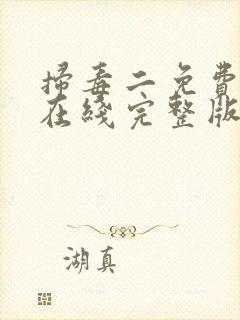 掃毒二免費
在綫完整版
湖真